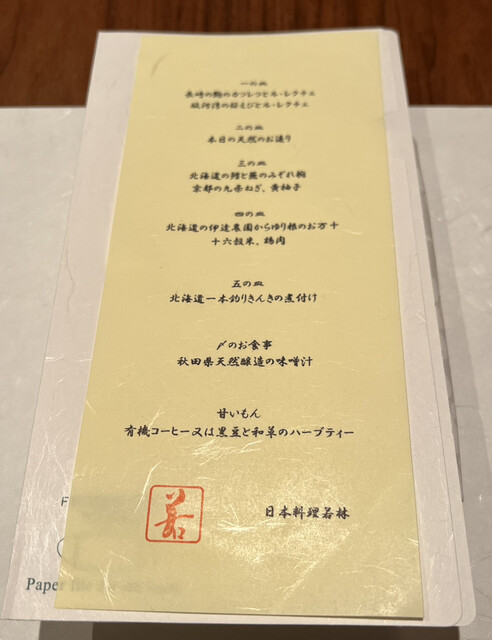 一の皿
長崎の鯛のカツレツとル・レクチェ
駿河湾の桜えびとル・レクチェ
二の皿
本日の天然のお造り
三の皿
北海道の鱈と蕪のみぞれ椀
京都の九条ねぎ、黄柚子
四の皿
北海道の伊達農園からゆり根のお万十
十六穀米、鶏肉
五の皿
北海道一本釣りきんきの煮付け
〆のお食事
秋田県天然醸造の味噌汁
甘いもん
有機コーヒー又は黒豆と和草のハーブティー
若
日本料理若林
Paper